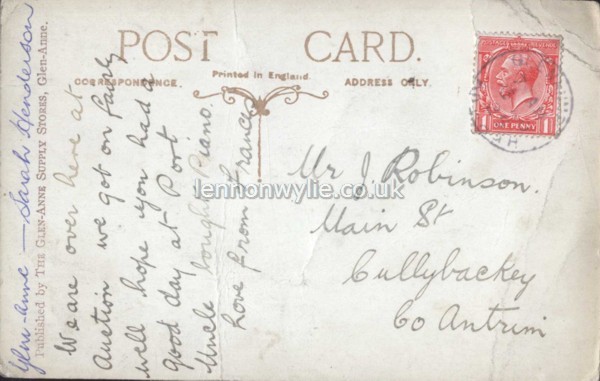 POST CARD.
CORRESPONDENCE.
Printed in England.
ADDRESS ONLY.
ONE PENNY
1 1
Glen-Anne — Sarah Henderson
Published by THE GLEN-ANNE SUPPLY STORES, Glen-Anne.
We are over here at
Auction we got on fairly
well hope you had a
good day at Port
Uncle bought Piano.
Love from France
Mr J. Robinson.
Main St
Cullybackey
Co Antrim
lennonwylie.co.uk